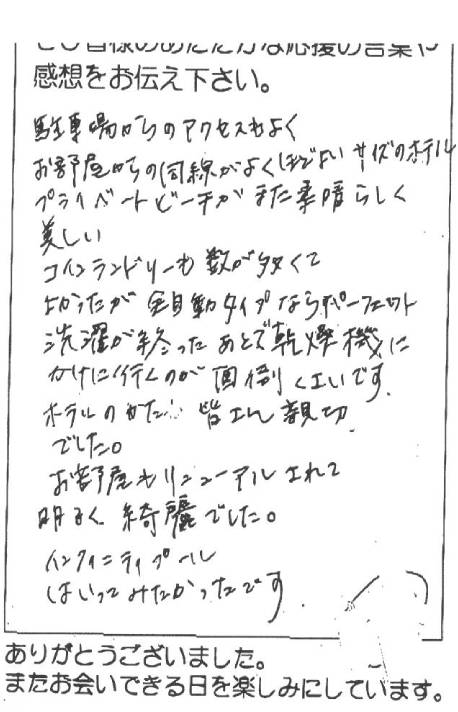 ぜひ皆様のあたたかな応援の言葉や
感想をお伝え下さい。
駐車場からのアクセスもよく
お部屋からの同線がよくほどよいサイズのホテル
プライベートビーチがまた素晴らしく
美しい
コインランドリーも数が多くて
よかったが 全自動タイプならパーフェクト
洗濯が終ったあとで乾燥機に
かけに行くのが面倒くさいです。
ホテルのかたも皆さん親切
でした。
お部屋もリニューアルされて
明るく綺麗でした。
インフィニティプール
はいってみたかったです
ありがとうございました。
またお会いできる日を楽しみにしています。